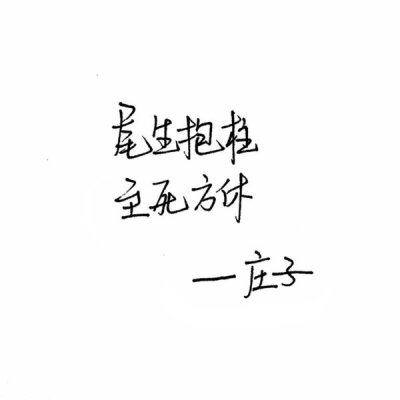 尾生抱柱
至死方休
—庄子